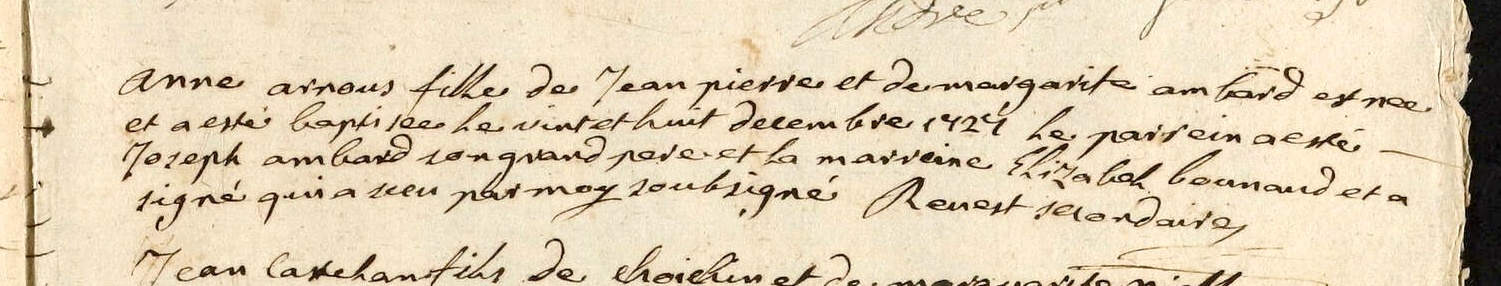 André
anne arnous fille de Jean pierre et de margarite ambard est nee
et a esté baptisee le vint et huit decembre 1727 le parrein a esté
Joseph ambard son grand pere et la marreine Elizabeh bounaud et a
signé qui a sceu par moy soubsigné Revest secondaire
Jean fils de et de marguarite